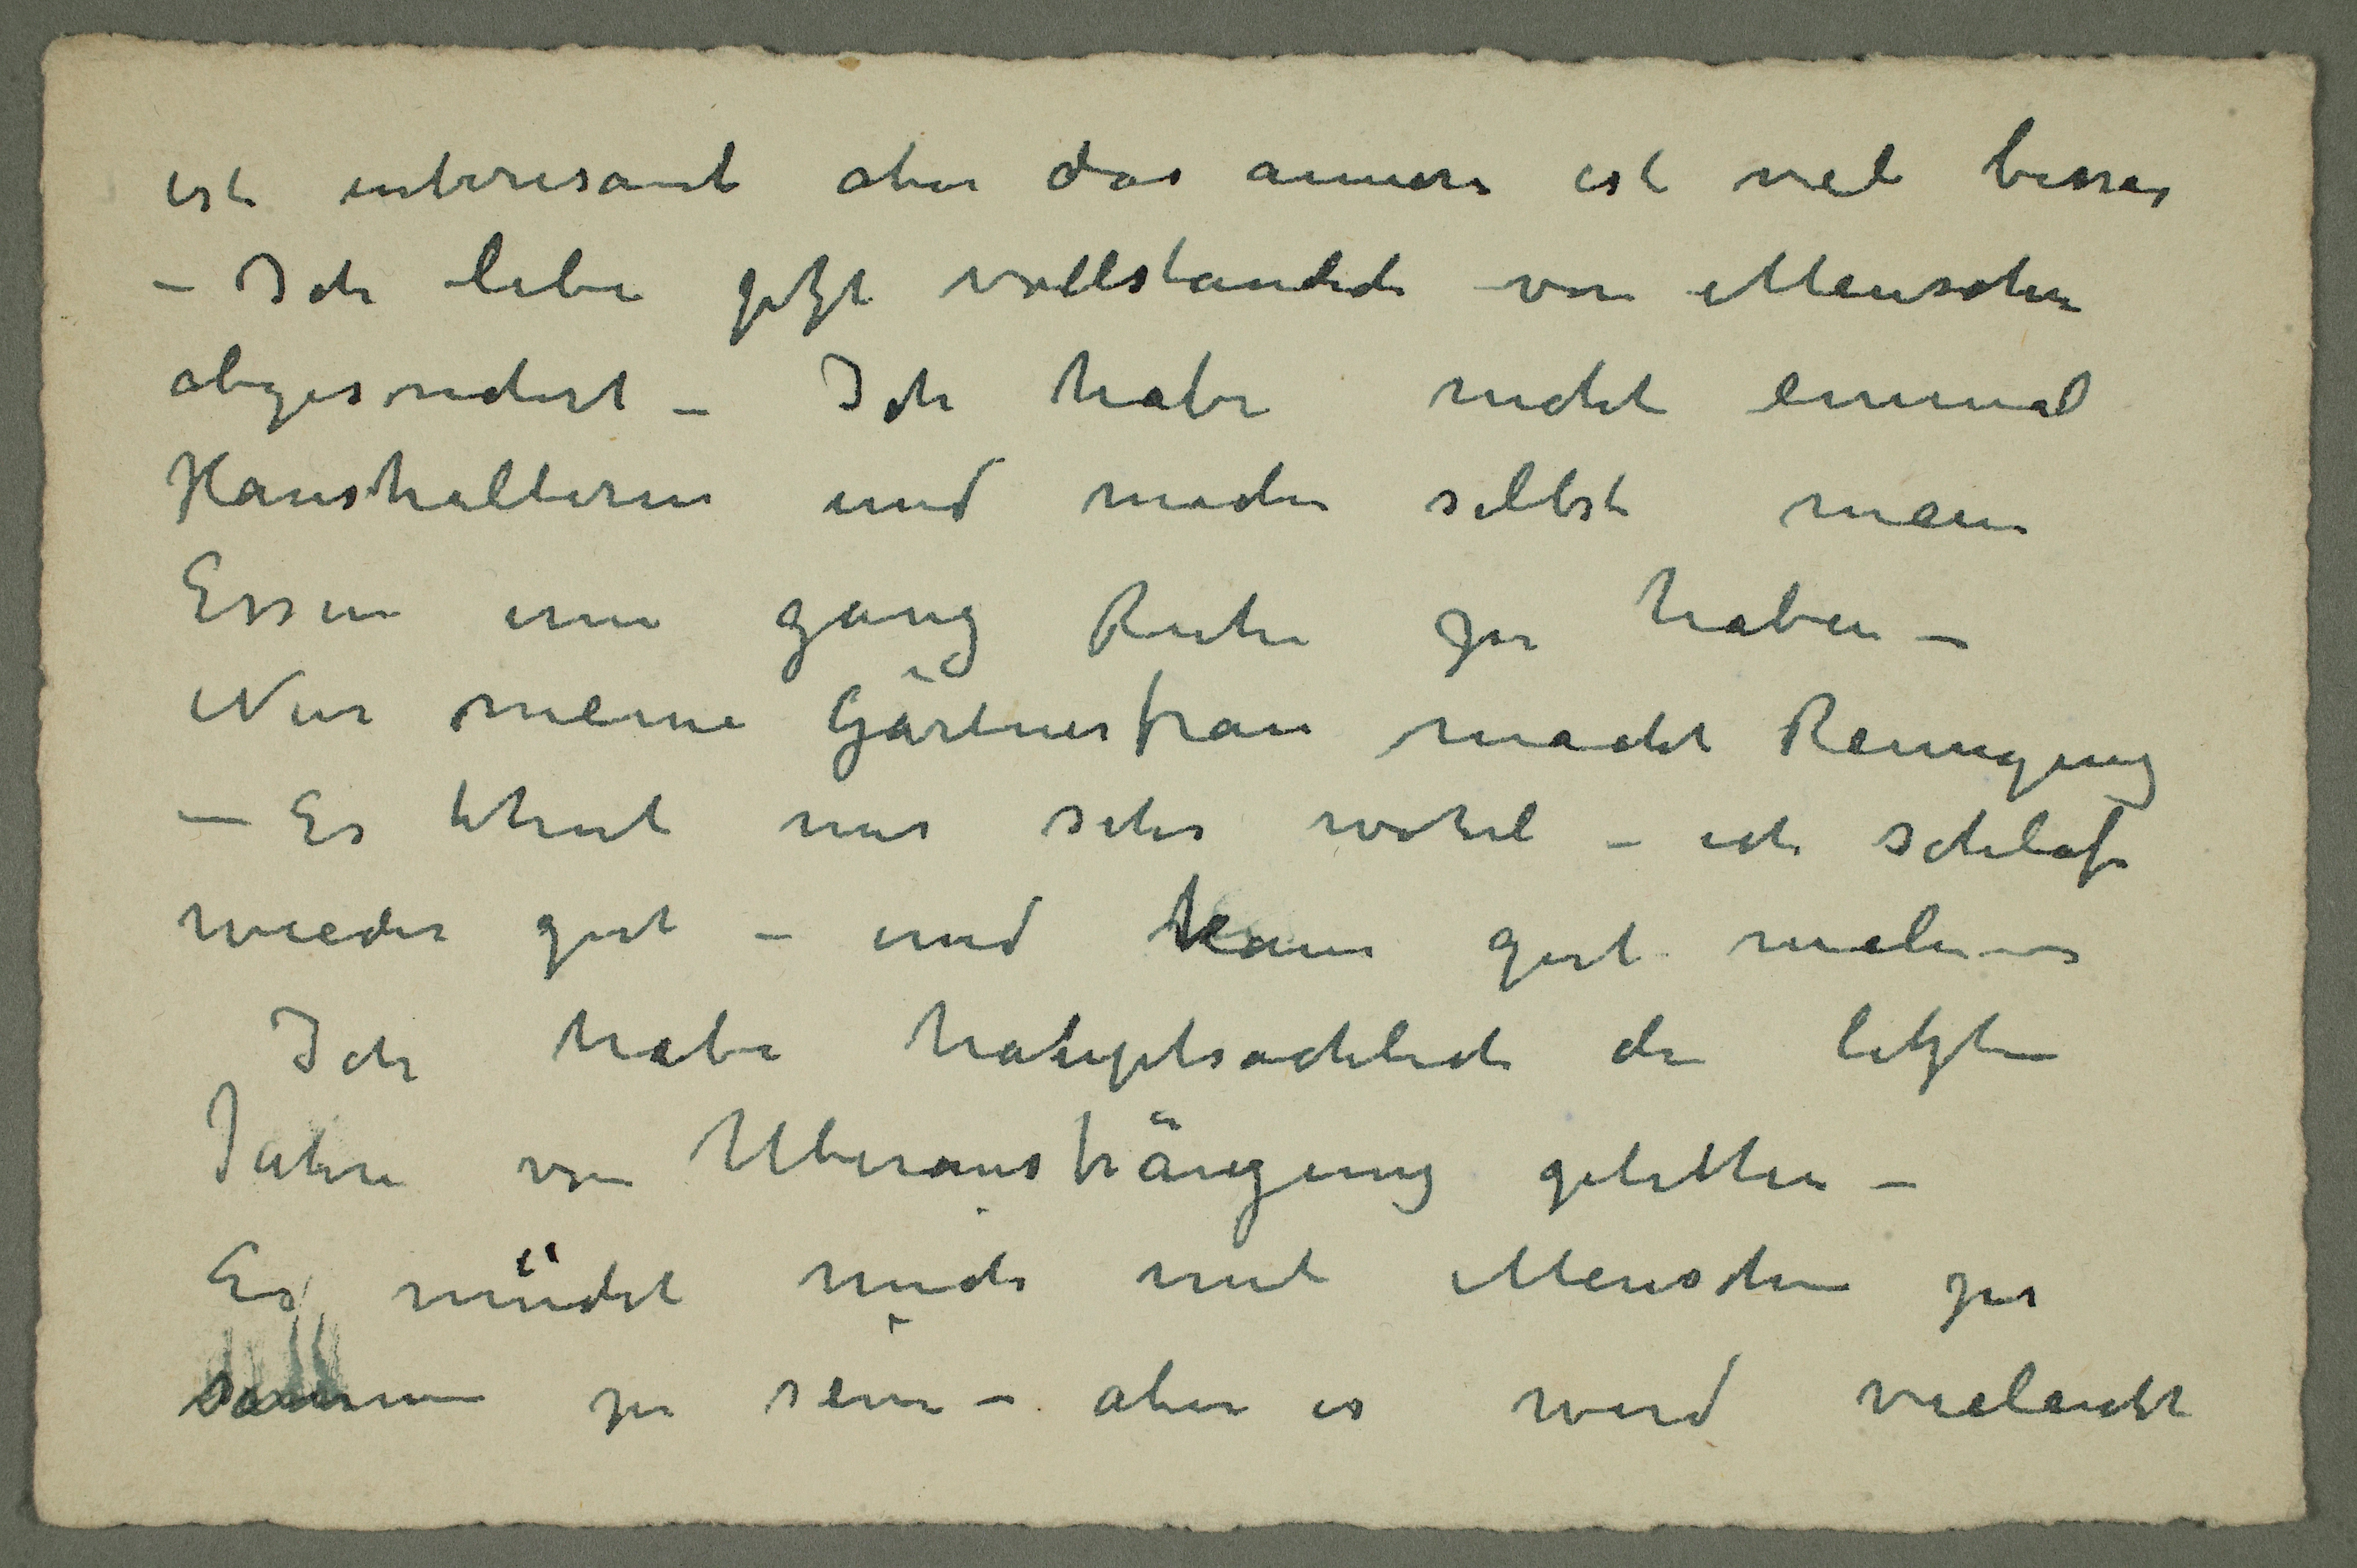 ist interesant aber das annere ist viel besser
– Ich lebe jetzt vollstandich von Menschen
abgesondert – Ich habe nicht einmal
Haushalterin und mache selbst mein
Essen um ganz Ruhe zu haben –
Nur meine Gärtnerfrau macht Reinigung
– Es thut mir sehr wohl – ich schlafe
wieder gut – und kann gut malen –
Ich habe hauptsachlich die letzten
Jahre von Uberansträngung gelitten –
Es müdet mich mit Menschen zu
sammen zu sein – aber es wird vieleicht